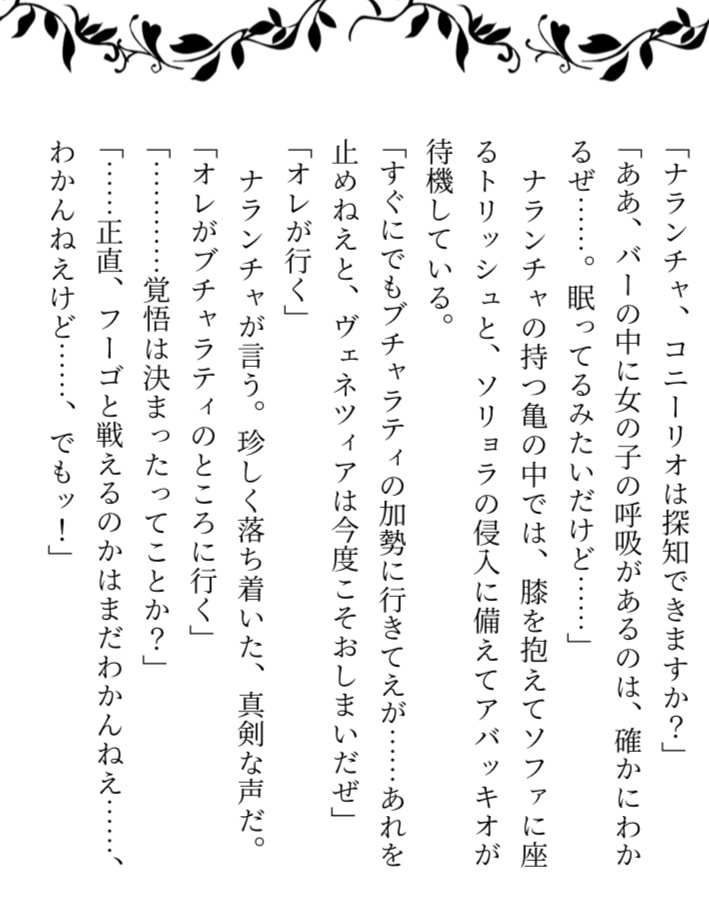 「ナランチャ、コニーリオは探知できますか？」
「ああ、バーの中に女の子の呼吸があるのは、確かにわか
るぜ……。眠ってるみたいだけど……」
　ナランチャの持つ亀の中では、膝を抱えてソファに座
るトリッシュと、ソリョラの侵入に備えてアバッキオが
待機している。
「すぐにでもブチャラティの加勢に行きてえが……あれを
止めねえと、ヴェネツィアは今度こそおしまいだぜ」
「オレが行く」
　ナランチャが言う。珍しく落ち着いた、真剣な声だ。
「オレがブチャラティのところに行く」
「…………覚悟は決まったってことか？」
「……正直、フーゴと戦えるのかはまだわかんねえ……、
わかんねえけど……、でもッ！」